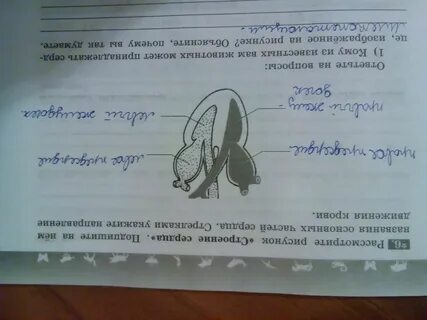 6. Рассмотрите рисунок «Строение сердца». Подпишите на нём
названия основных частей сердца. Стрелками укажите направление
движения крови.
правое предсердие
левое предсердие
правый желу-
дочек
левый желудочек
Ответьте на вопросы:
1) Кому из известных вам животных может принадлежать серд-
це, изображённое на рисунке? Объясните, почему вы так думаете.
Млекопитающим.